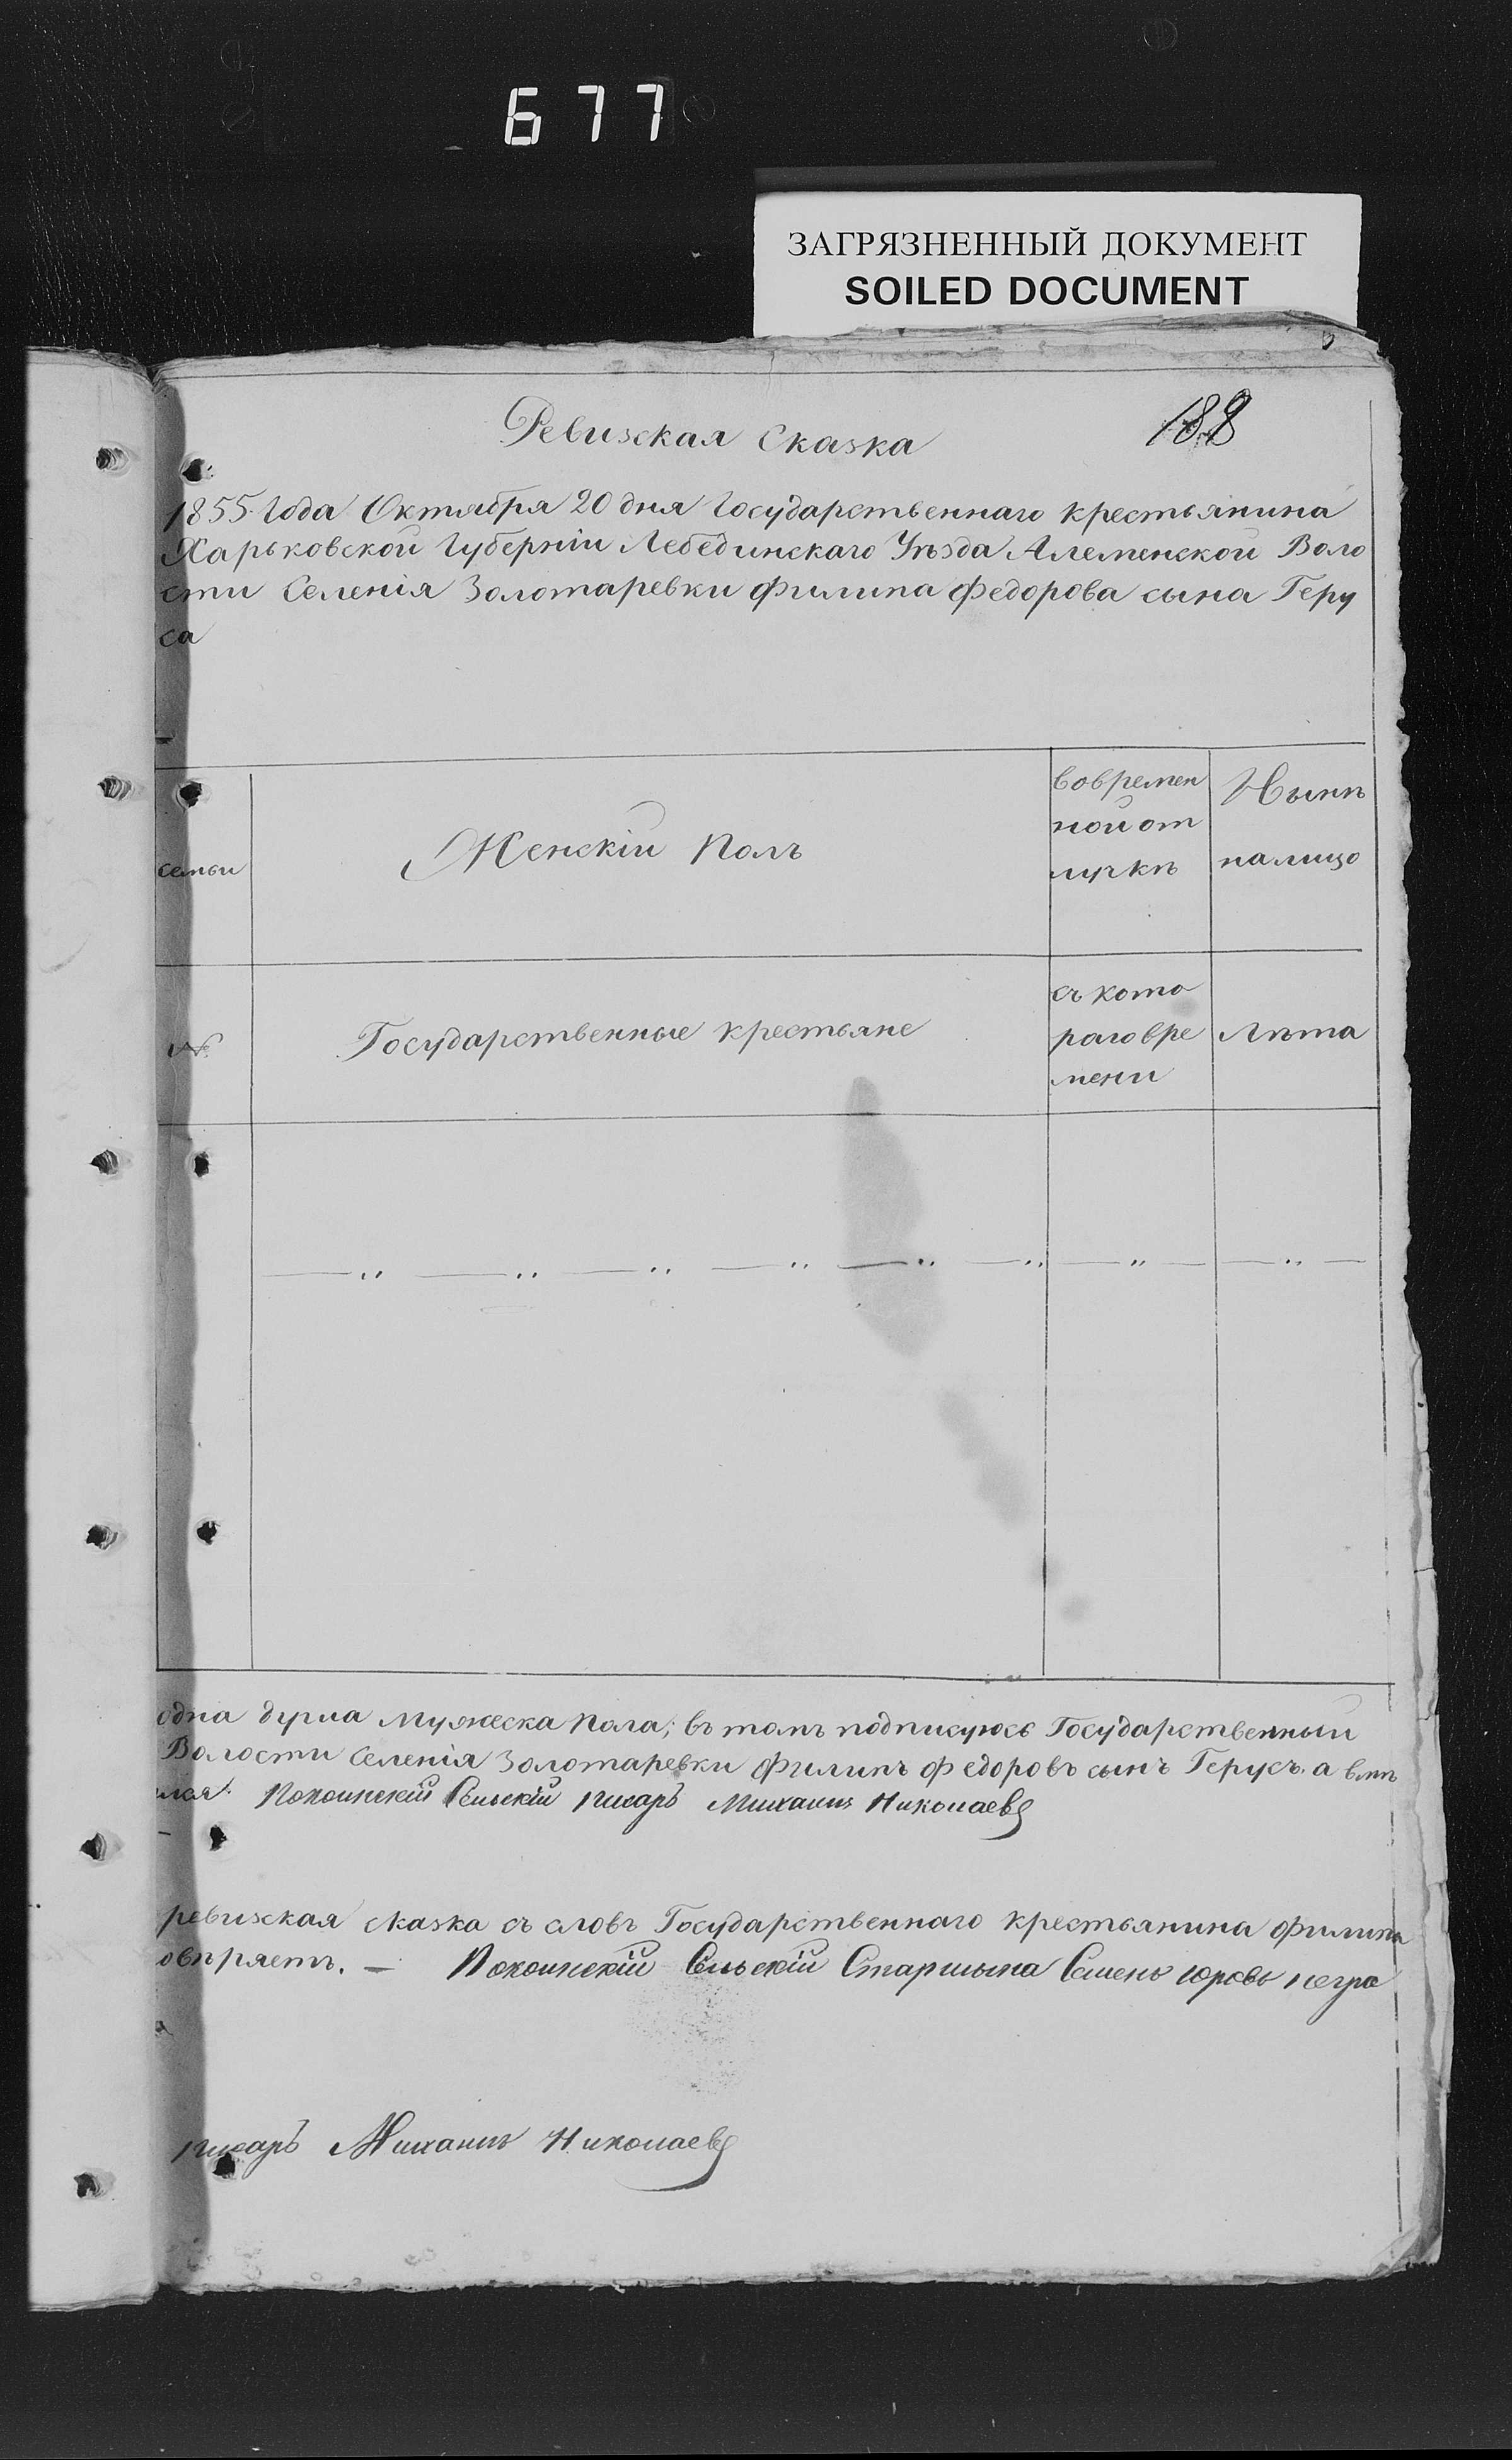 677
ЗАГРЯЗНЕННЫЙ ДОКУМЕНТ
SOILED DOCUMENT
Ревизская Сказка
188
1855 Года Октября 20 дня Государственнаго крестьянина
Харьковской Губерніи Лебединскаго Уѣзда Алеменской Воло
сти Селенія Золотаревки Филипа Федорова сына Геру
са
семьи
Женскій Полъ
вовремен
ной от
лучкѣ
Нынѣ
налицо
№
Государственные крестьяне
съ кото
раго вре
мени
Лѣта
одна душа мужеска пола; въ томъ подписуюсь Государственный
Волости Селенія Золотаревки Филипъ Федоровъ сынъ Герусъ. а вмѣ
Сельскій писарь Михаилъ Николаевъ
ревизская сказка съ словъ Государственнаго крестьянина Филипа
овѣряетъ. — Сельскій Старшына Семенъ Юровъ
писарь Михаилъ Николаевъ